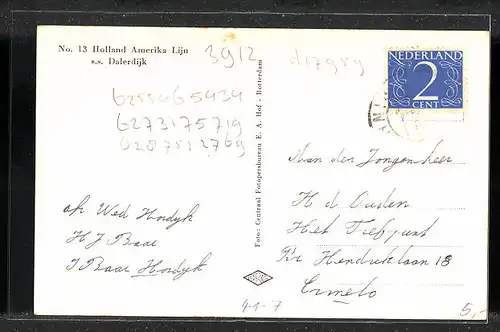 No. 13 Holland Amerika Lijn
s.s. Dalerdijk
3912
d17989
NEDERLAND
2
CENT
6255465434
6273175719
6287512769
Foto: Centraal Fotopersbureau E. A. Hof - Rotterdam
Aan den Jongenheer
H d Ouden
Het Tiefpunt
Pr Hendriklaan 13
Ermelo
Wed Hordyk
H J Baar
J Baar Hordyk
4-1-7
5,-